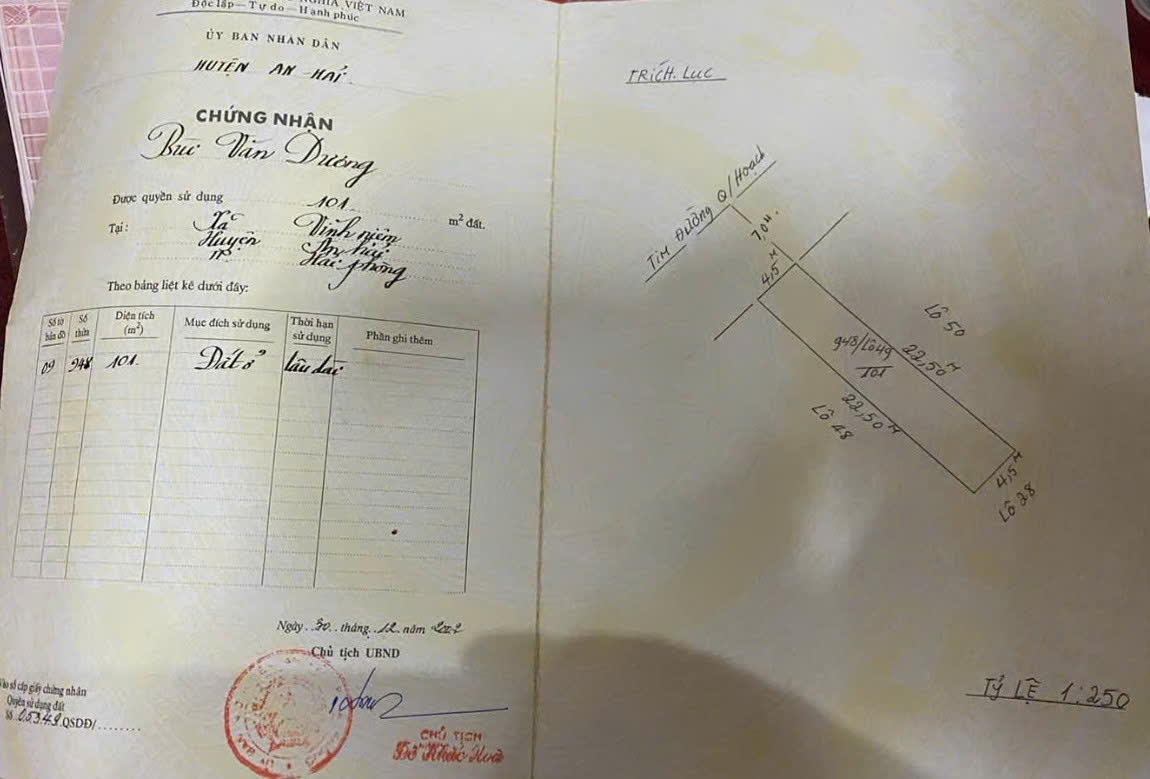 NGHĨA VIỆT NAM
Độc lập — Tự do — Hạnh phúc
ỦY BAN NHÂN DÂN
HUYỆN AN HẢI
CHỨNG NHẬN
Bùi Văn Dương
Được quyền sử dụng 101 m² đất.
Tại: Xã Vĩnh niệm
Huyện An hải
TP Hải phòng
Theo bảng liệt kê dưới đây:
Số tờ bản đồ Số thửa Diện tích (m²) Mục đích sử dụng Thời hạn sử dụng Phần ghi thêm
09 948 101. Đất ở lâu dài
Ngày 30 tháng 12 năm
Chủ tịch UBND
CHỦ TỊCH
Đỗ Khắc Hoà
Vào sổ cấp giấy chứng nhận
Quyền sử dụng đất
Số QSDĐ/
TRÍCH LỤC
TIM ĐƯỜNG Q/HOẠCH
7,0M.
4,5M
LÔ 50
948/LÔ49
101
22,50M
22,50M
LÔ 48
4,5M
LÔ 28
TỶ LỆ 1:250